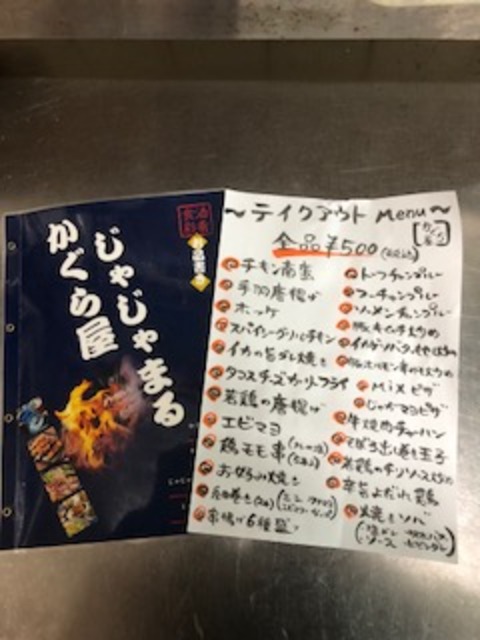 じゃじゃまる
かぐら屋
お品書き
～テイクアウト Menu～
全品￥500(税込)
チキン南蛮
手羽唐揚げ
ホッケ
スパイシーグリルチキン
イカの旨ダレ焼き
タコスチーズカリーフライ
若鶏の唐揚げ
エビマヨ
鶏モモ串
お好み焼き
串揚げ6種盛り
トーフチャンプルー
フーチャンプルー
ソーメンチャンプルー
豚キムチ炒め
Mixピザ
じゃがマヨピザ
牛焼肉チャーハン
ねぎ出し巻き玉子
若鶏のチリソース炒め
辛旨よだれ鶏
焼きソバ